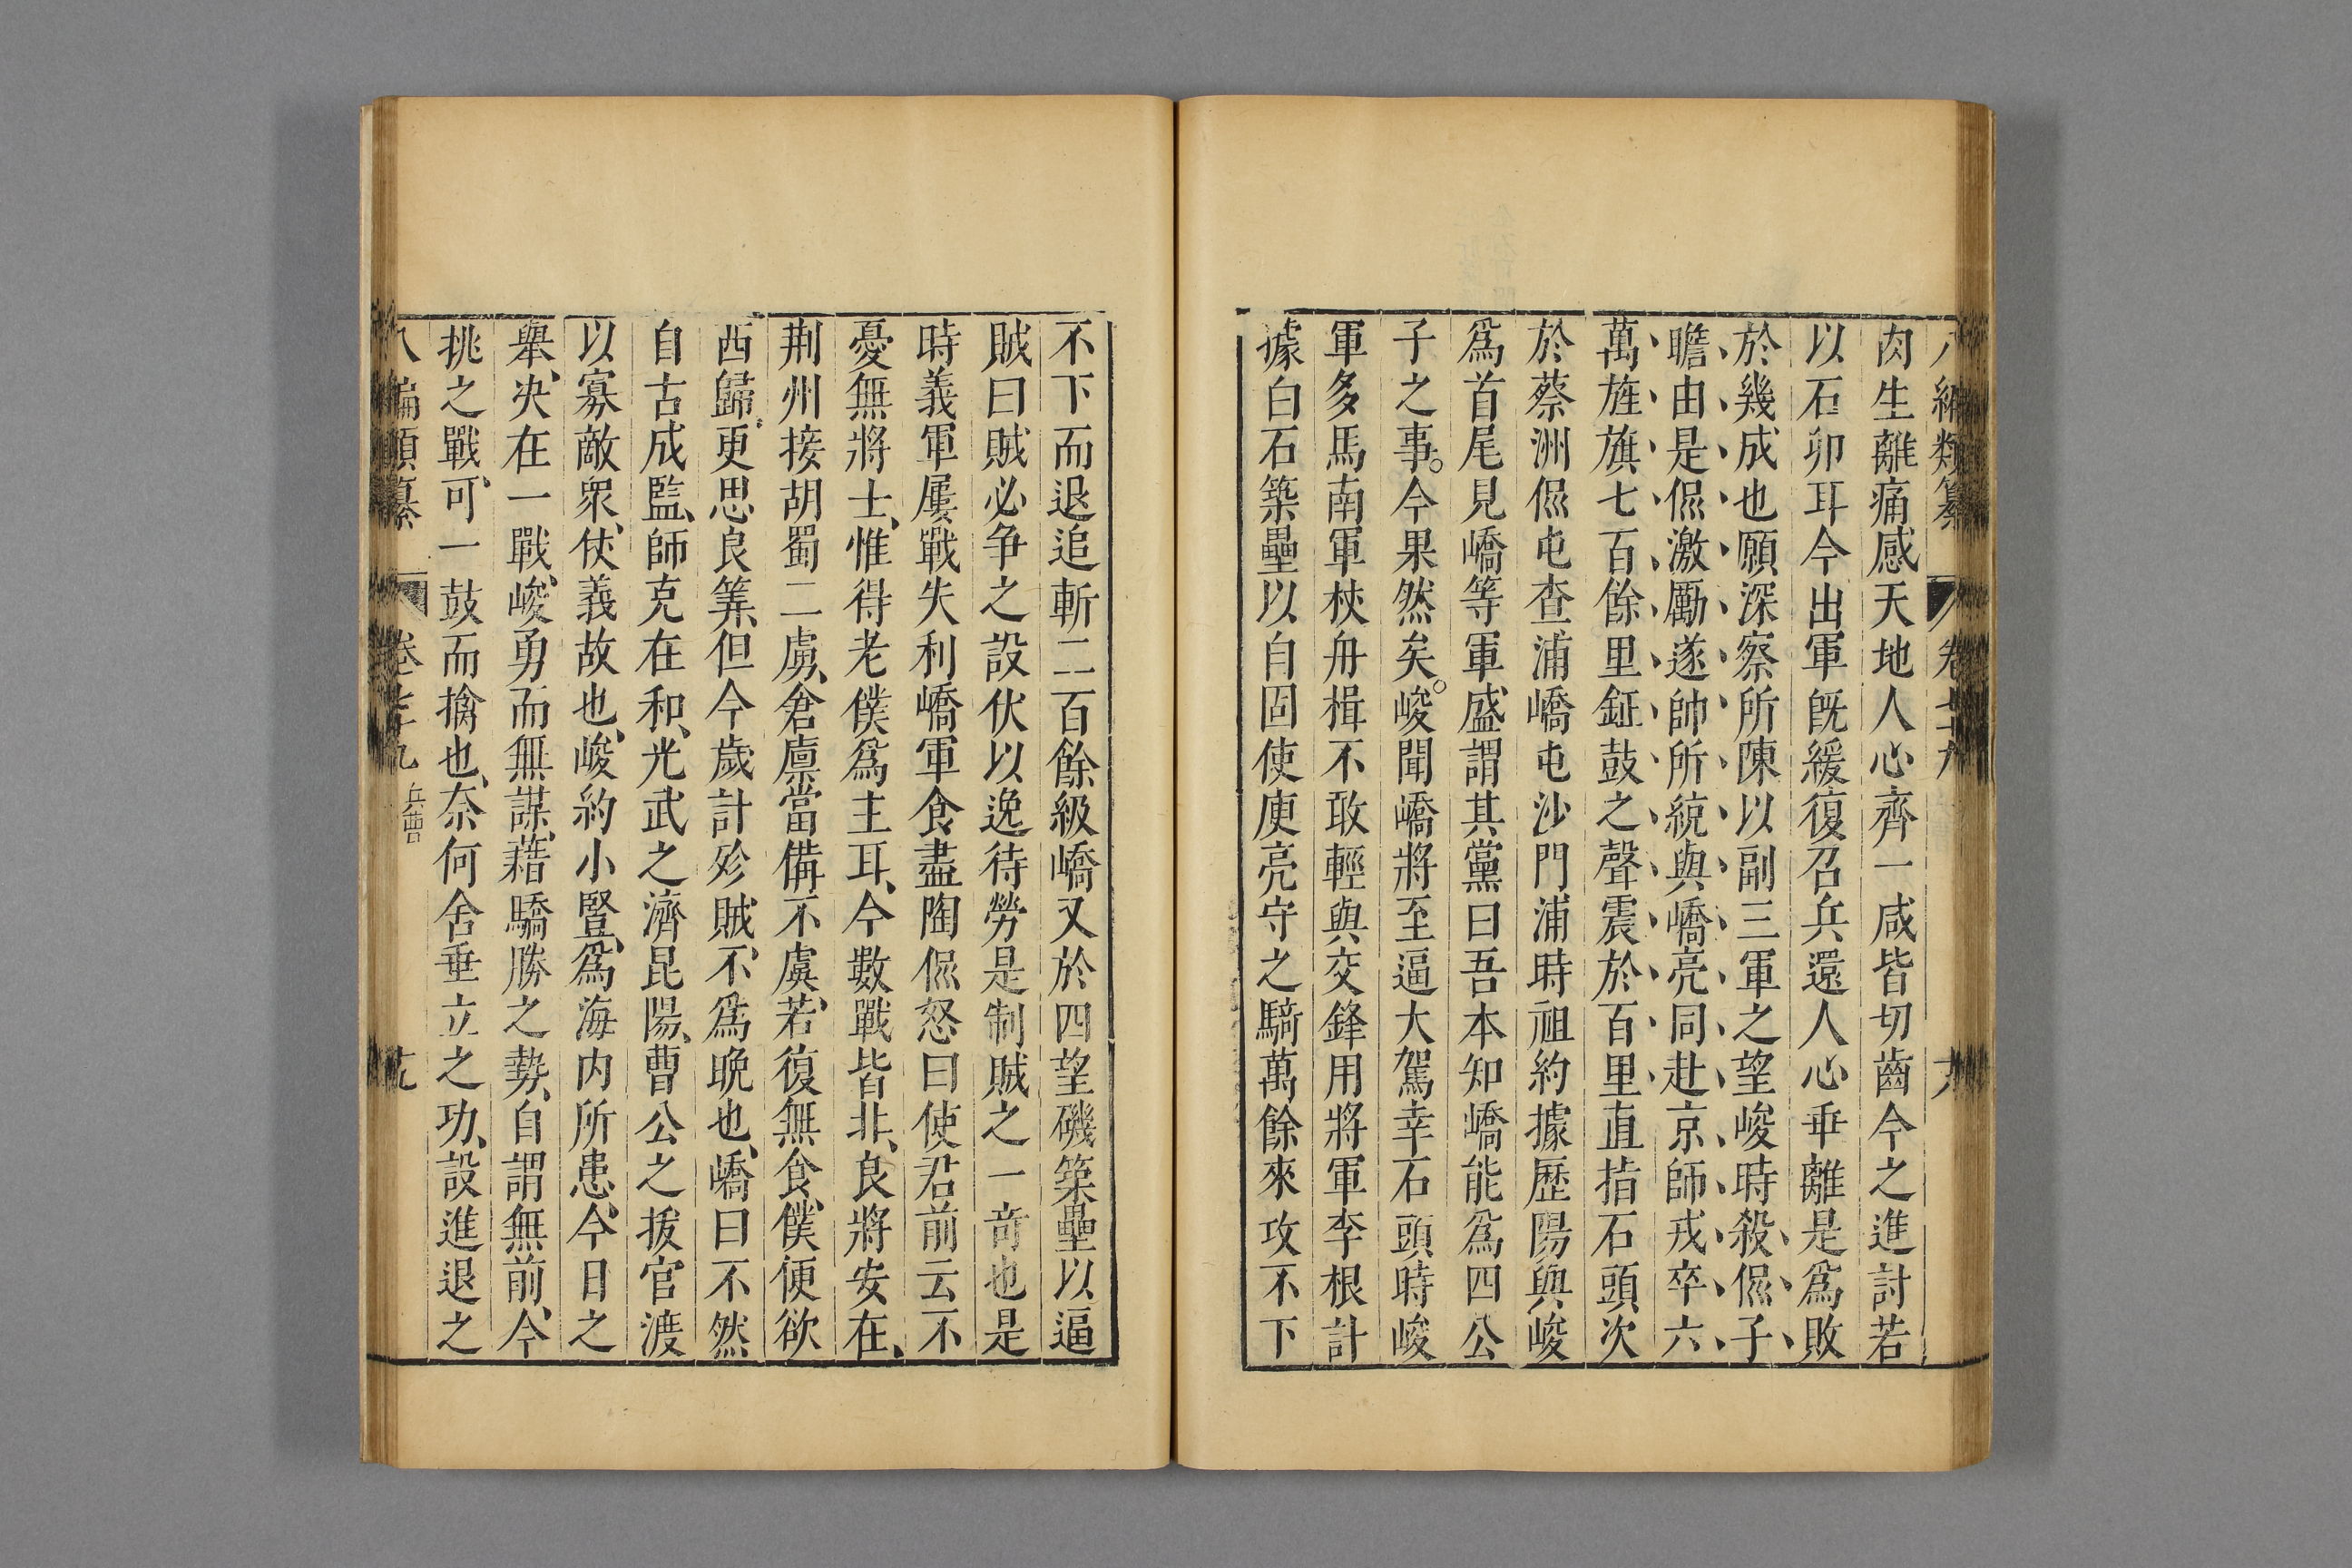 八編類纂 卷七十九 六
肉生離痛感天地人心齊一咸皆切齒今之進討若
以石卵耳今出軍旣緩復召兵還人心乖離是爲敗
於幾成也願深察所陳以副三軍之望峻時殺侃子
瞻由是侃激勵遂帥所統與嶠亮同赴京師戎卒六
萬旌旗七百餘里鉦鼓之聲震於百里直指石頭次
於蔡洲侃屯查浦嶠屯沙門浦時祖約據歷陽與峻
爲首尾見嶠等軍盛謂其黨曰吾本知嶠能爲四公
子之事。今果然矣。峻聞嶠將至逼大駕幸石頭時峻
軍多馬南軍杖舟楫不敢輕與交鋒用將軍李根計
據白石築壘以自固使庾亮守之騎萬餘來攻不下
不下而退追斬二百餘級嶠又於四望磯築壘以逼
賊曰賊必争之設伏以逸待勞是制賊之一竒也是
時義軍屢戰失利嶠軍食盡陶侃怒曰使君前云不
憂無將士、惟得老僕爲主耳、今數戰皆非、良將安在、
荆州接胡蜀二虜、倉廪當備不虞、若復無食、僕便欲
西歸、更思良筭、但今歲計殄賊、不爲晩也、嶠曰不然
自古成監、師克在和、光武之濟昆陽、曹公之拔官渡
以寡敵衆、仗義故也、峻約小豎、爲海内所患、今日之
舉、决在一戰、峻勇而無謀、藉驕勝之勢、自謂無前、今
挑之戰、可一鼓而擒也、奈何舍垂立之功、設進退之
八編類纂 卷七十九 兵曹